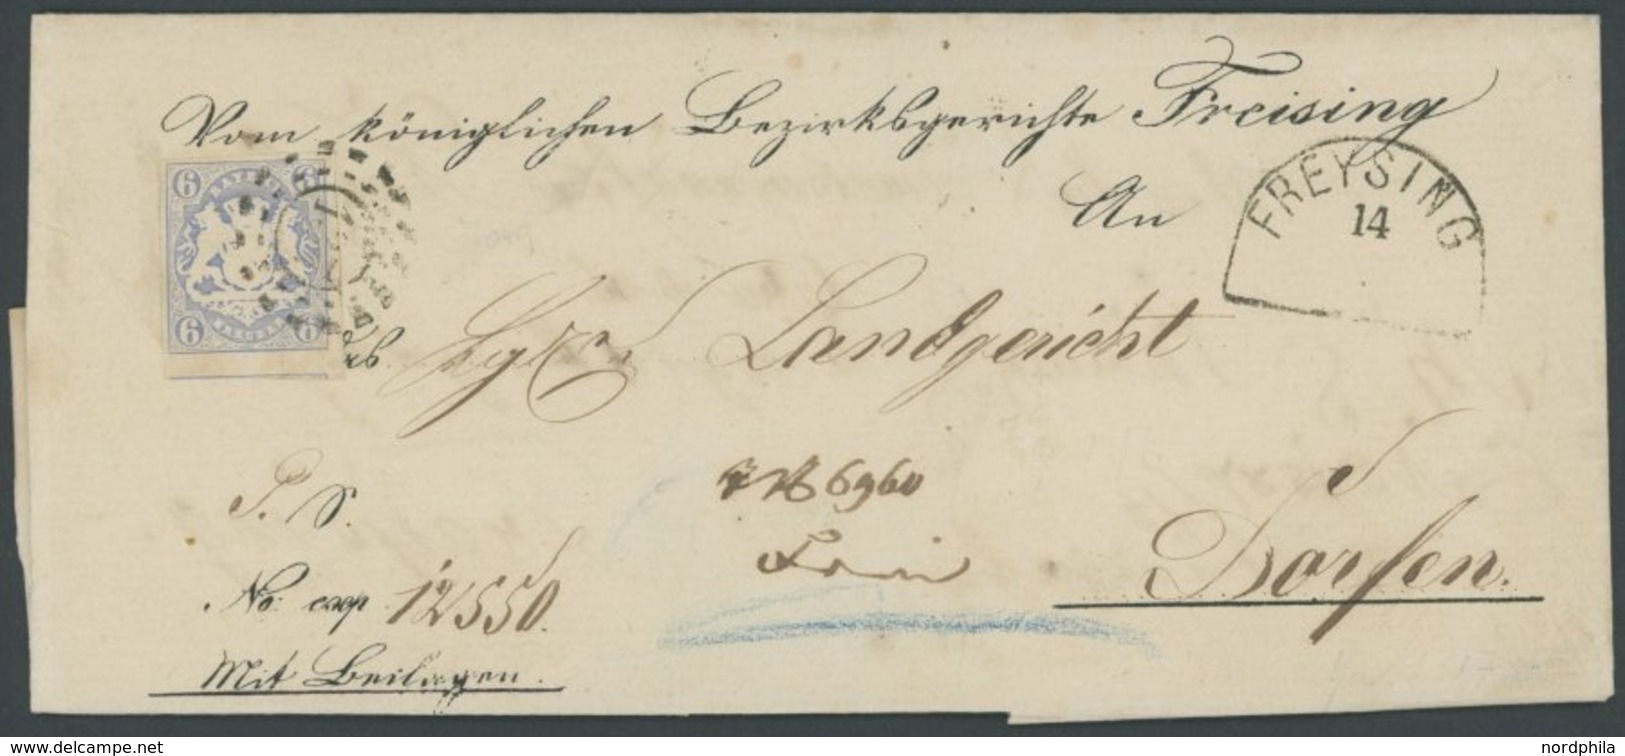 Vom königlichen Bezirksgerichte Freising
An
FREYSING
14
6 BAYERN 6
6 6
Landgericht
6960
Dorfen.
P. S.
No: exp 12550.
Mit Beilagen.
www.delcampe.net
nordphila